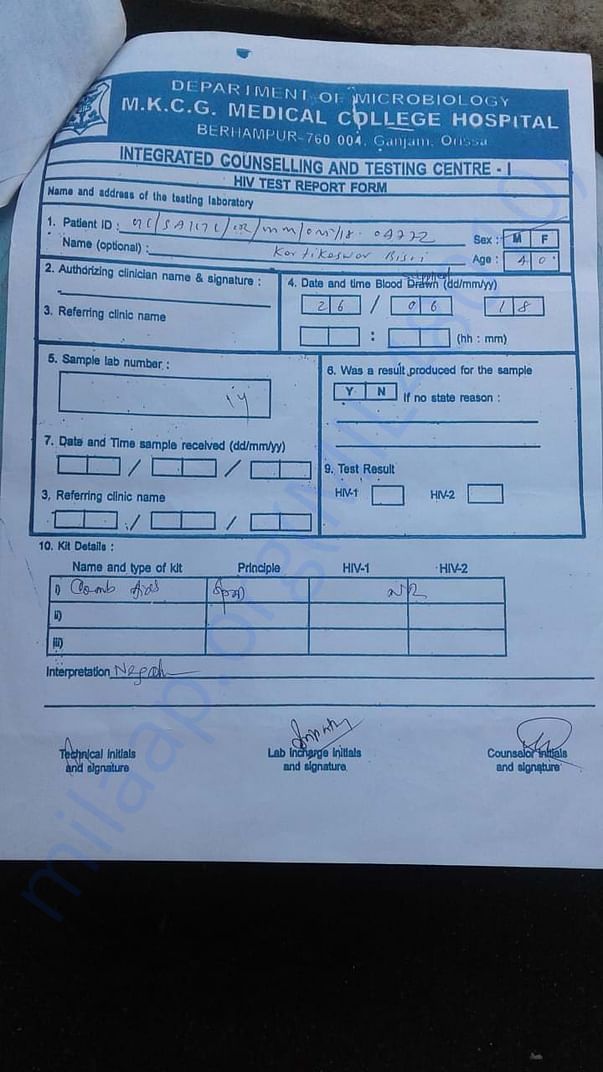 DEPARTMENT OF MICROBIOLOGY
M.K.C.G. MEDICAL COLLEGE HOSPITAL
BERHAMPUR-760 004, Ganjam, Orissa
INTEGRATED COUNSELLING AND TESTING CENTRE - I
HIV TEST REPORT FORM
Name and address of the testing laboratory
1. Patient ID :
Name (optional) : Kartikeswar Bisoi
Sex : M F
Age : 40
2. Authorizing clinician name & signature :
3. Referring clinic name
4. Date and time Blood Drawn (dd/mm/yy)
26 / 06 18
: (hh : mm)
5. Sample lab number :
6. Was a result produced for the sample
Y N If no state reason :
7. Date and Time sample received (dd/mm/yy)
/ /
3. Referring clinic name
/ /
9. Test Result
HIV-1 HIV-2
10. Kit Details :
Name and type of kit Principle HIV-1 HIV-2
i) Comb NR
ii)
iii)
Interpretation
Technical Initials and signature
Lab Incharge Initials and signature
Counselor Initials and signature
milaap.org